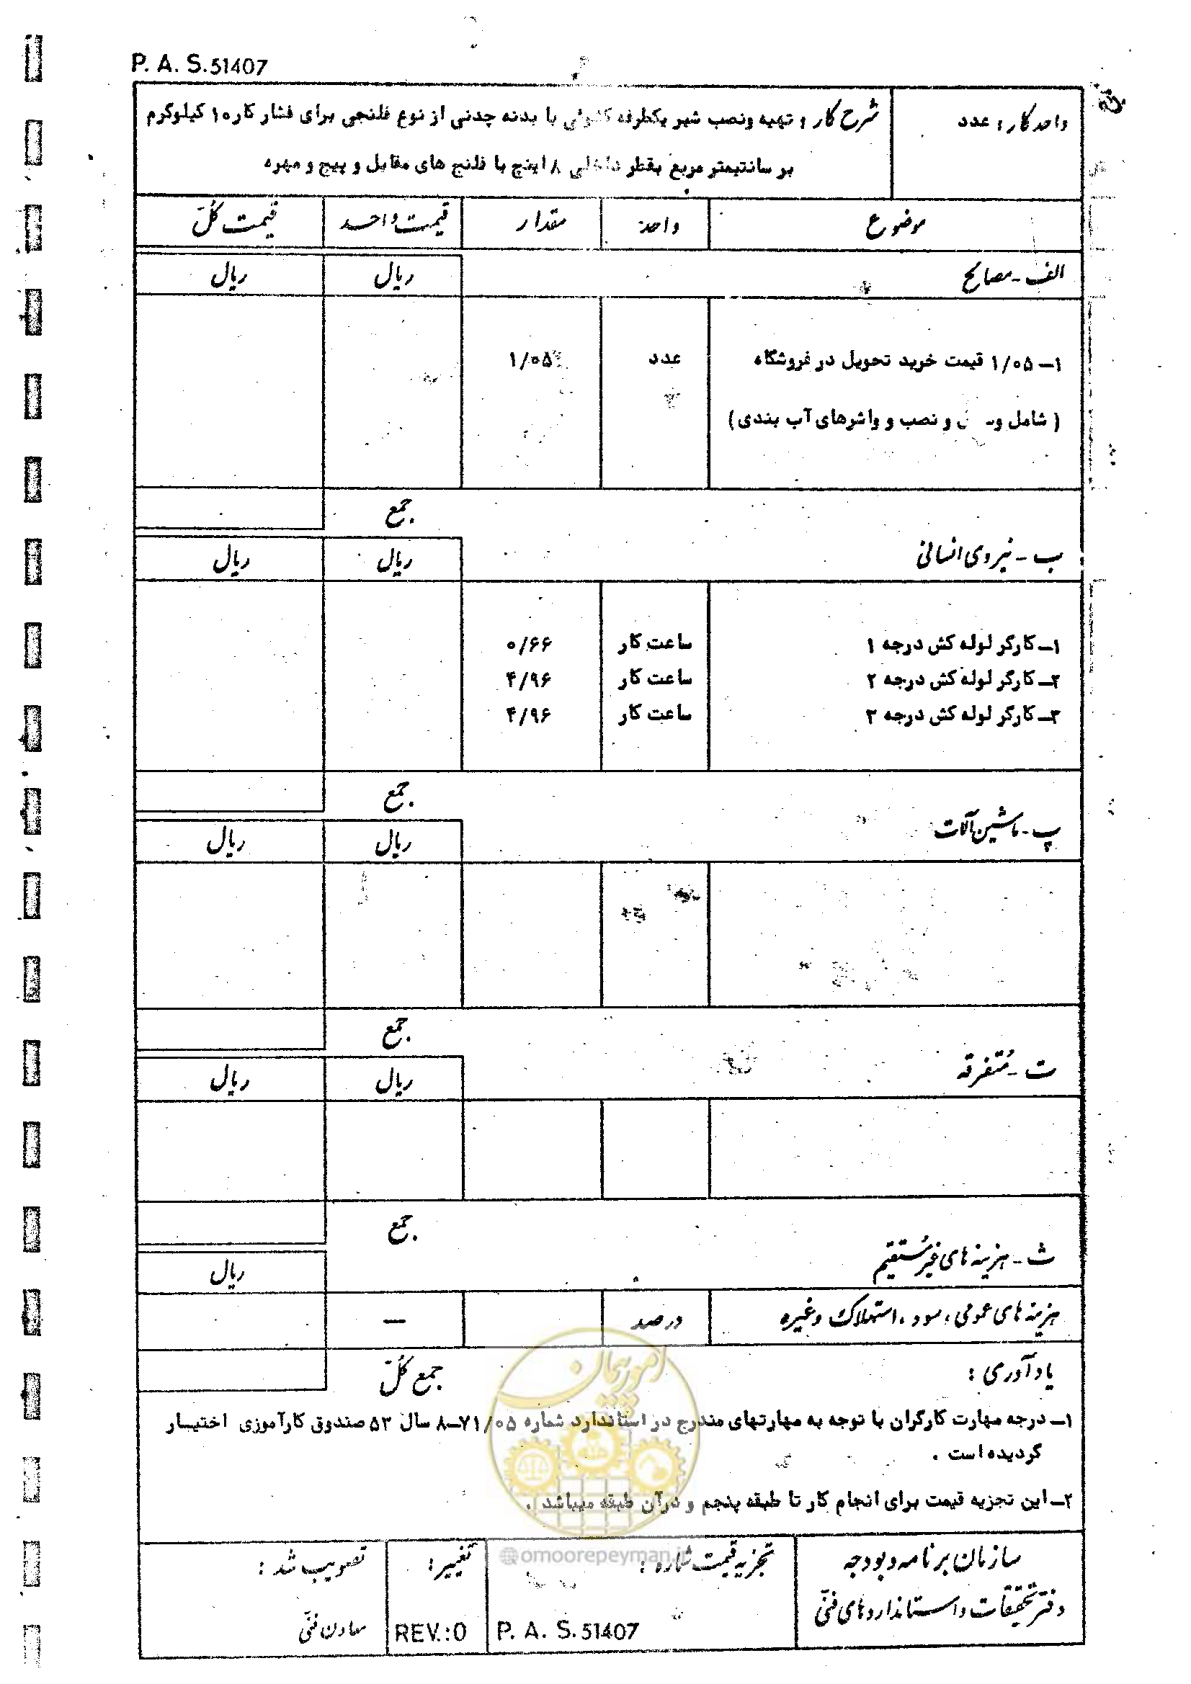 P. A. S.51407
واحد کار : عدد
شرح کار : تهیه ونصب شیر یکطرفه کشوئی با بدنه چدنی از نوع فلنجی برای فشار کار ۱۰ کیلوگرم
بر سانتیمتر مربع بقطر داخلی ۸ اینچ با فلنج های مقابل و پیچ و مهره
موضوع واحد مقدار قیمت واحد قیمت کلّ
الف - مصالح ریال ریال
۱- ۱/۰۵ قیمت خرید تحویل در فروشگاه عدد ۱/۰۵
( شامل و نصب و واشرهای آب بندی )
جمع
ب - نیروی انسانی ریال ریال
۱- کارگر لوله کش درجه ۱ ساعت کار ۰/۶۶
۲- کارگر لوله کش درجه ۲ ساعت کار ۴/۹۶
۳- کارگر لوله کش درجه ۳ ساعت کار ۴/۹۶
جمع
پ - ماشین آلات ریال ریال
جمع
ت - مُتفرقه ریال ریال
جمع
ث - هزینه های غیرمُستقیم ریال
هزینه های عمومی ، سود ، استهلاک وغیره درصد —
یادآوری : جمع کلّ
۱- درجه مهارت کارگران با توجه به مهارتهای مندرج در استاندارد شماره ۷۱/۰۵-۸ سال ۵۳ صندوق کارآموزی اختیـار
گردیده است .
۲- این تجزیه قیمت برای انجام کار تا طبقه پنجم و درآن طبقه میباشد .
امور پیمان
@omoorepeyman.ir
سازمان برنامه و بودجه
دفتر تحقیقات و استانداردهای فنّی
تجزیه قیمت شماره :
P. A. S.51407
تغییر :
REV.:0
تصویب شد :
معاون فنّی